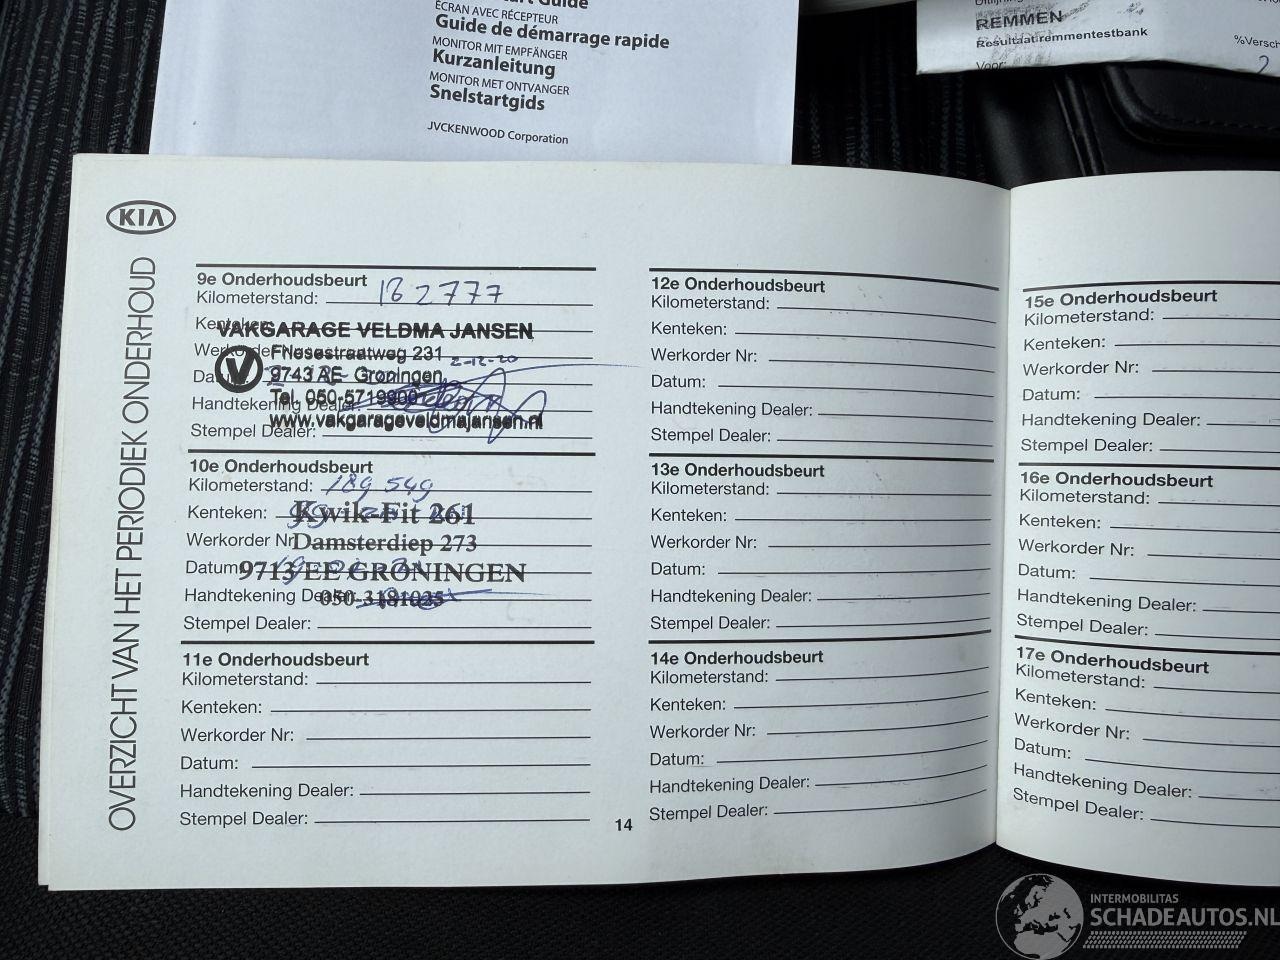 ÉCRAN AVEC RÉCEPTEUR
Guide de démarrage rapide
MONITOR MIT EMPFÄNGER
Kurzanleitung
MONITOR MET ONTVANGER
Snelstartgids
JVCKENWOOD Corporation
REMMEN
Resultaat remmentestbank
%Versch
Voor:
2
KIA
OVERZICHT VAN HET PERIODIEK ONDERHOUD
9e Onderhoudsbeurt
Kilometerstand: 182777
Kenteken:
VAKGARAGE VELDMA JANSEN
Werkorder Nr:
Friesestraatweg 231
2-12-20
Datum:
9743 AE Groningen
Handtekening Dealer:
Tel. 050-5719900
www.vakgarageveldmajansen.nl
Stempel Dealer:
10e Onderhoudsbeurt
Kilometerstand: 189 549
Kenteken:
Kwik-Fit 261
Werkorder Nr:
Damsterdiep 273
Datum:
9713 EE GRONINGEN
Handtekening Dealer:
050-3181025
Stempel Dealer:
11e Onderhoudsbeurt
Kilometerstand:
Kenteken:
Werkorder Nr:
Datum:
Handtekening Dealer:
Stempel Dealer:
14
12e Onderhoudsbeurt
Kilometerstand:
Kenteken:
Werkorder Nr:
Datum:
Handtekening Dealer:
Stempel Dealer:
13e Onderhoudsbeurt
Kilometerstand:
Kenteken:
Werkorder Nr:
Datum:
Handtekening Dealer:
Stempel Dealer:
14e Onderhoudsbeurt
Kilometerstand:
Kenteken:
Werkorder Nr:
Datum:
Handtekening Dealer:
Stempel Dealer:
15e Onderhoudsbeurt
Kilometerstand:
Kenteken:
Werkorder Nr:
Datum:
Handtekening Dealer:
Stempel Dealer:
16e Onderhoudsbeurt
Kilometerstand:
Kenteken:
Werkorder Nr:
Datum:
Handtekening Dealer:
Stempel Dealer:
17e Onderhoudsbeurt
Kilometerstand:
Kenteken:
Werkorder Nr:
Datum:
Handtekening Dealer:
Stempel Dealer:
INTERMOBILITAS
SCHADEAUTOS.NL